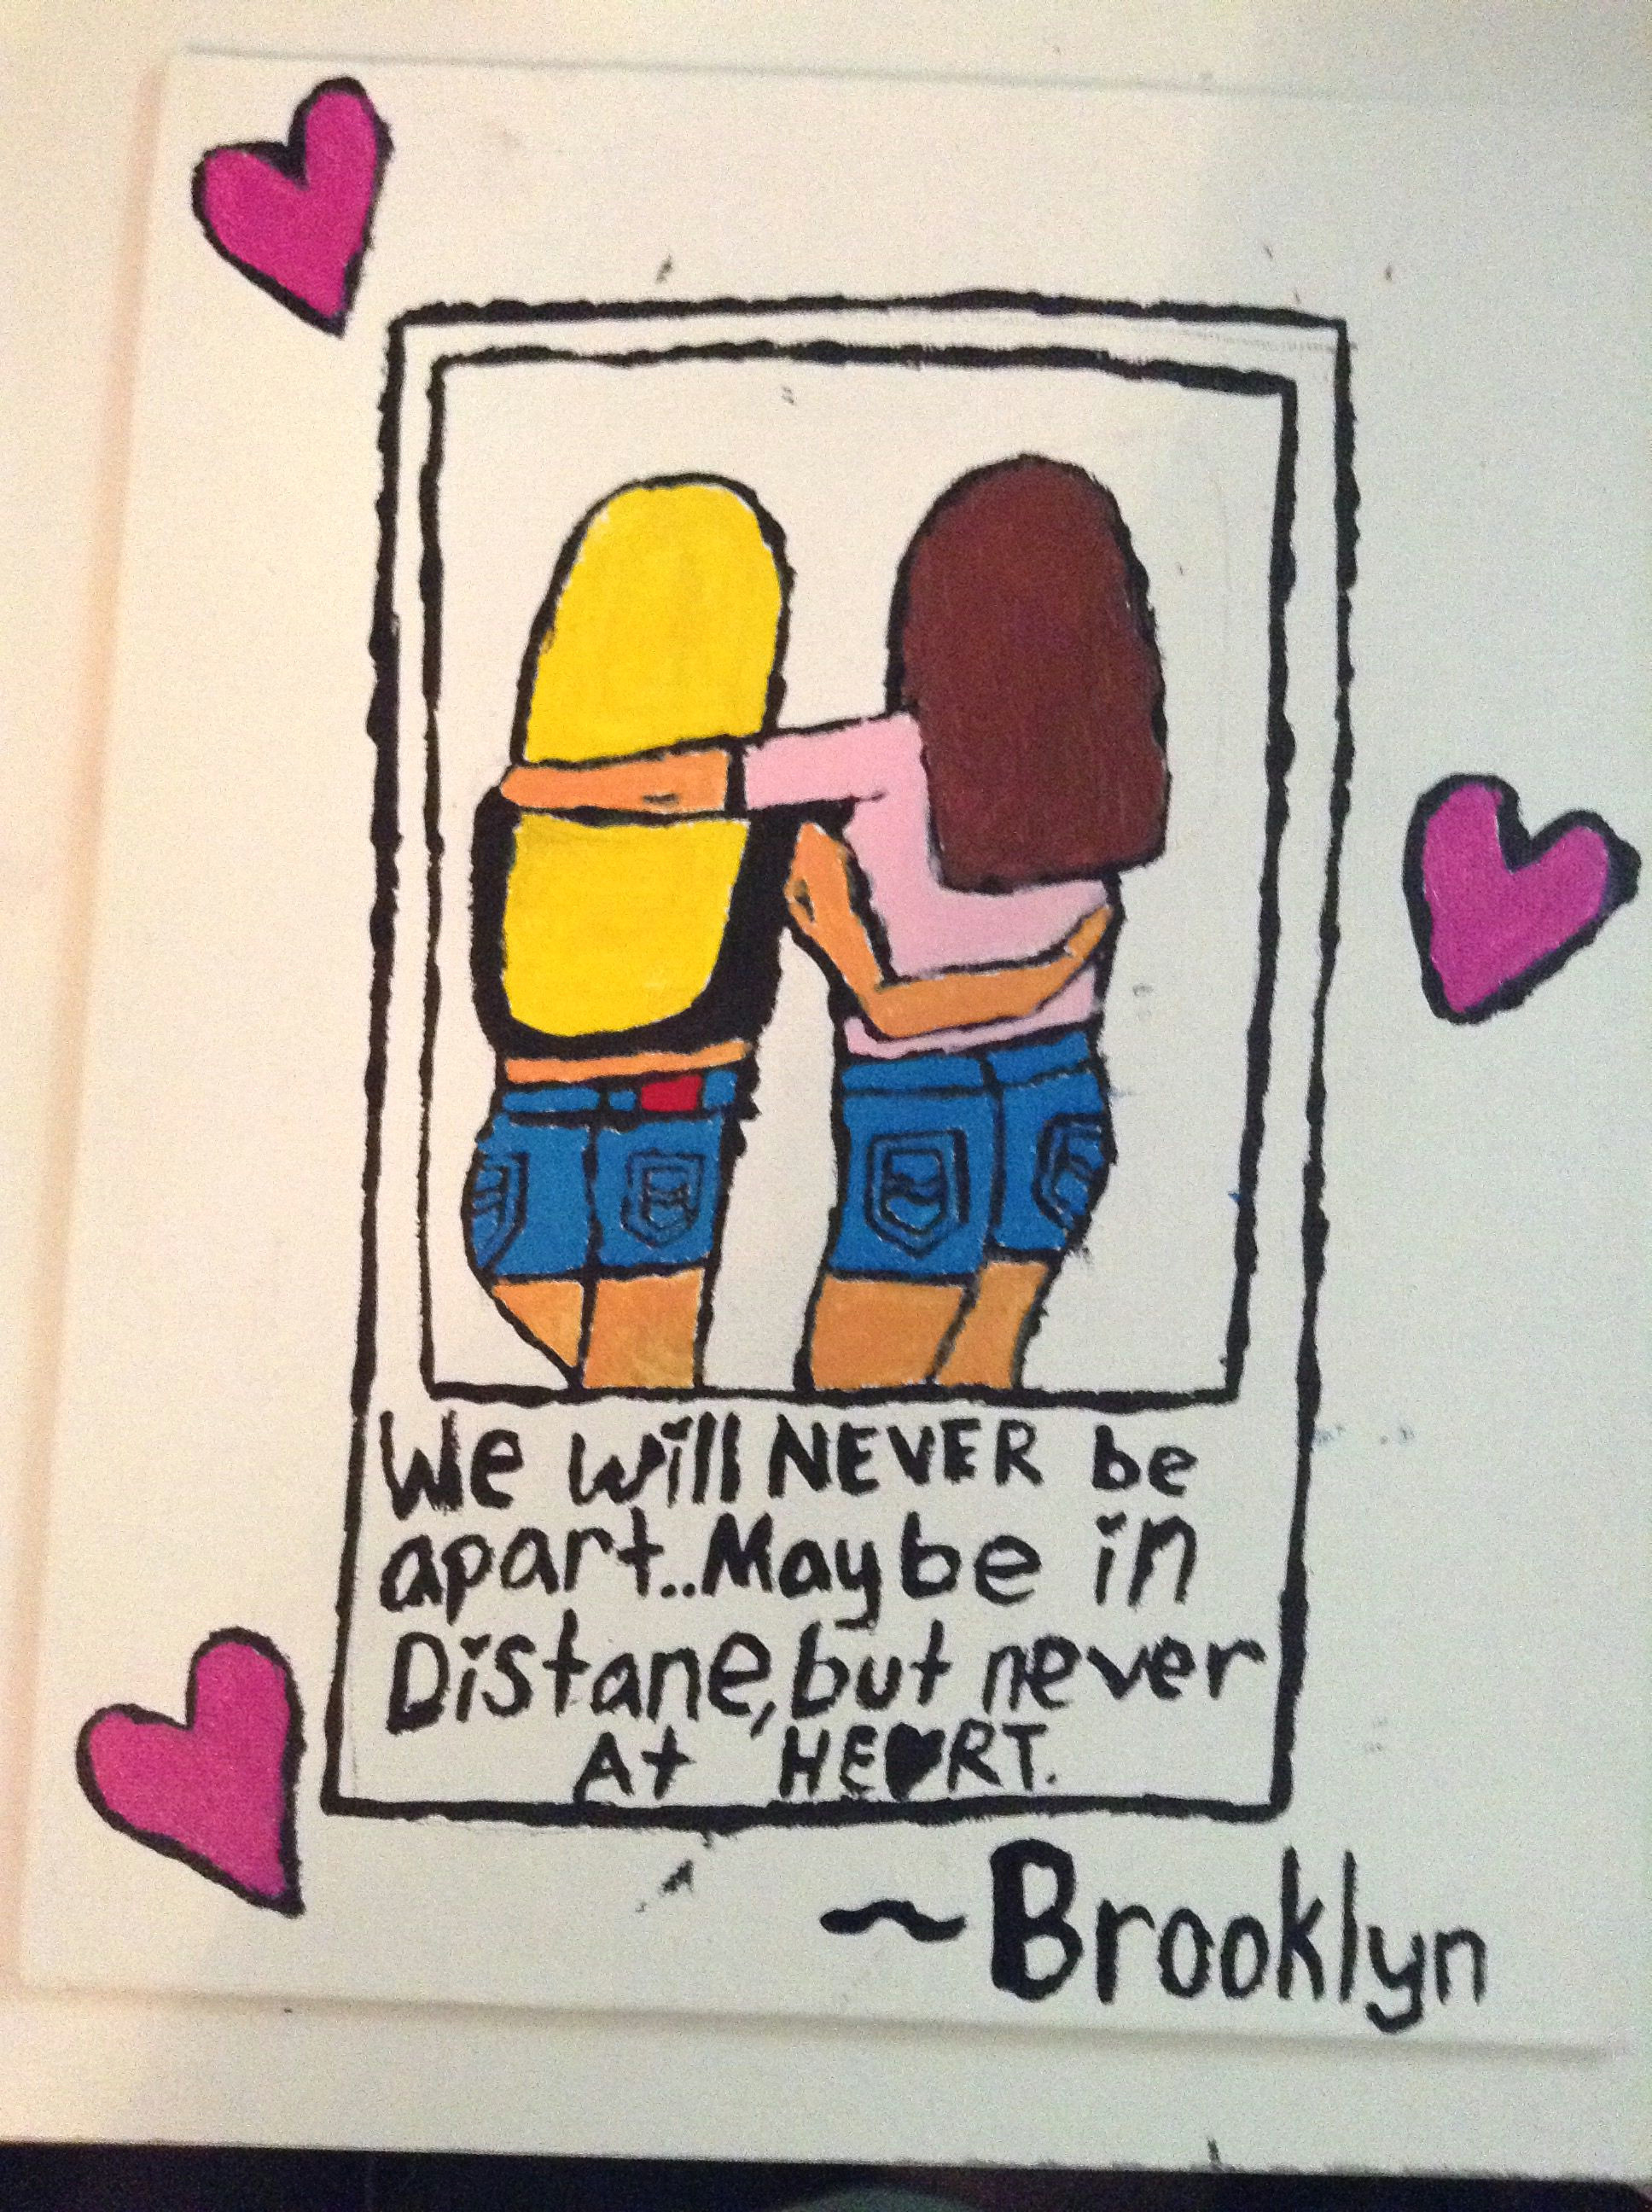 We will NEVER be
apart..Maybe in
Distane, but never
At HE♥RT.
~Brooklyn